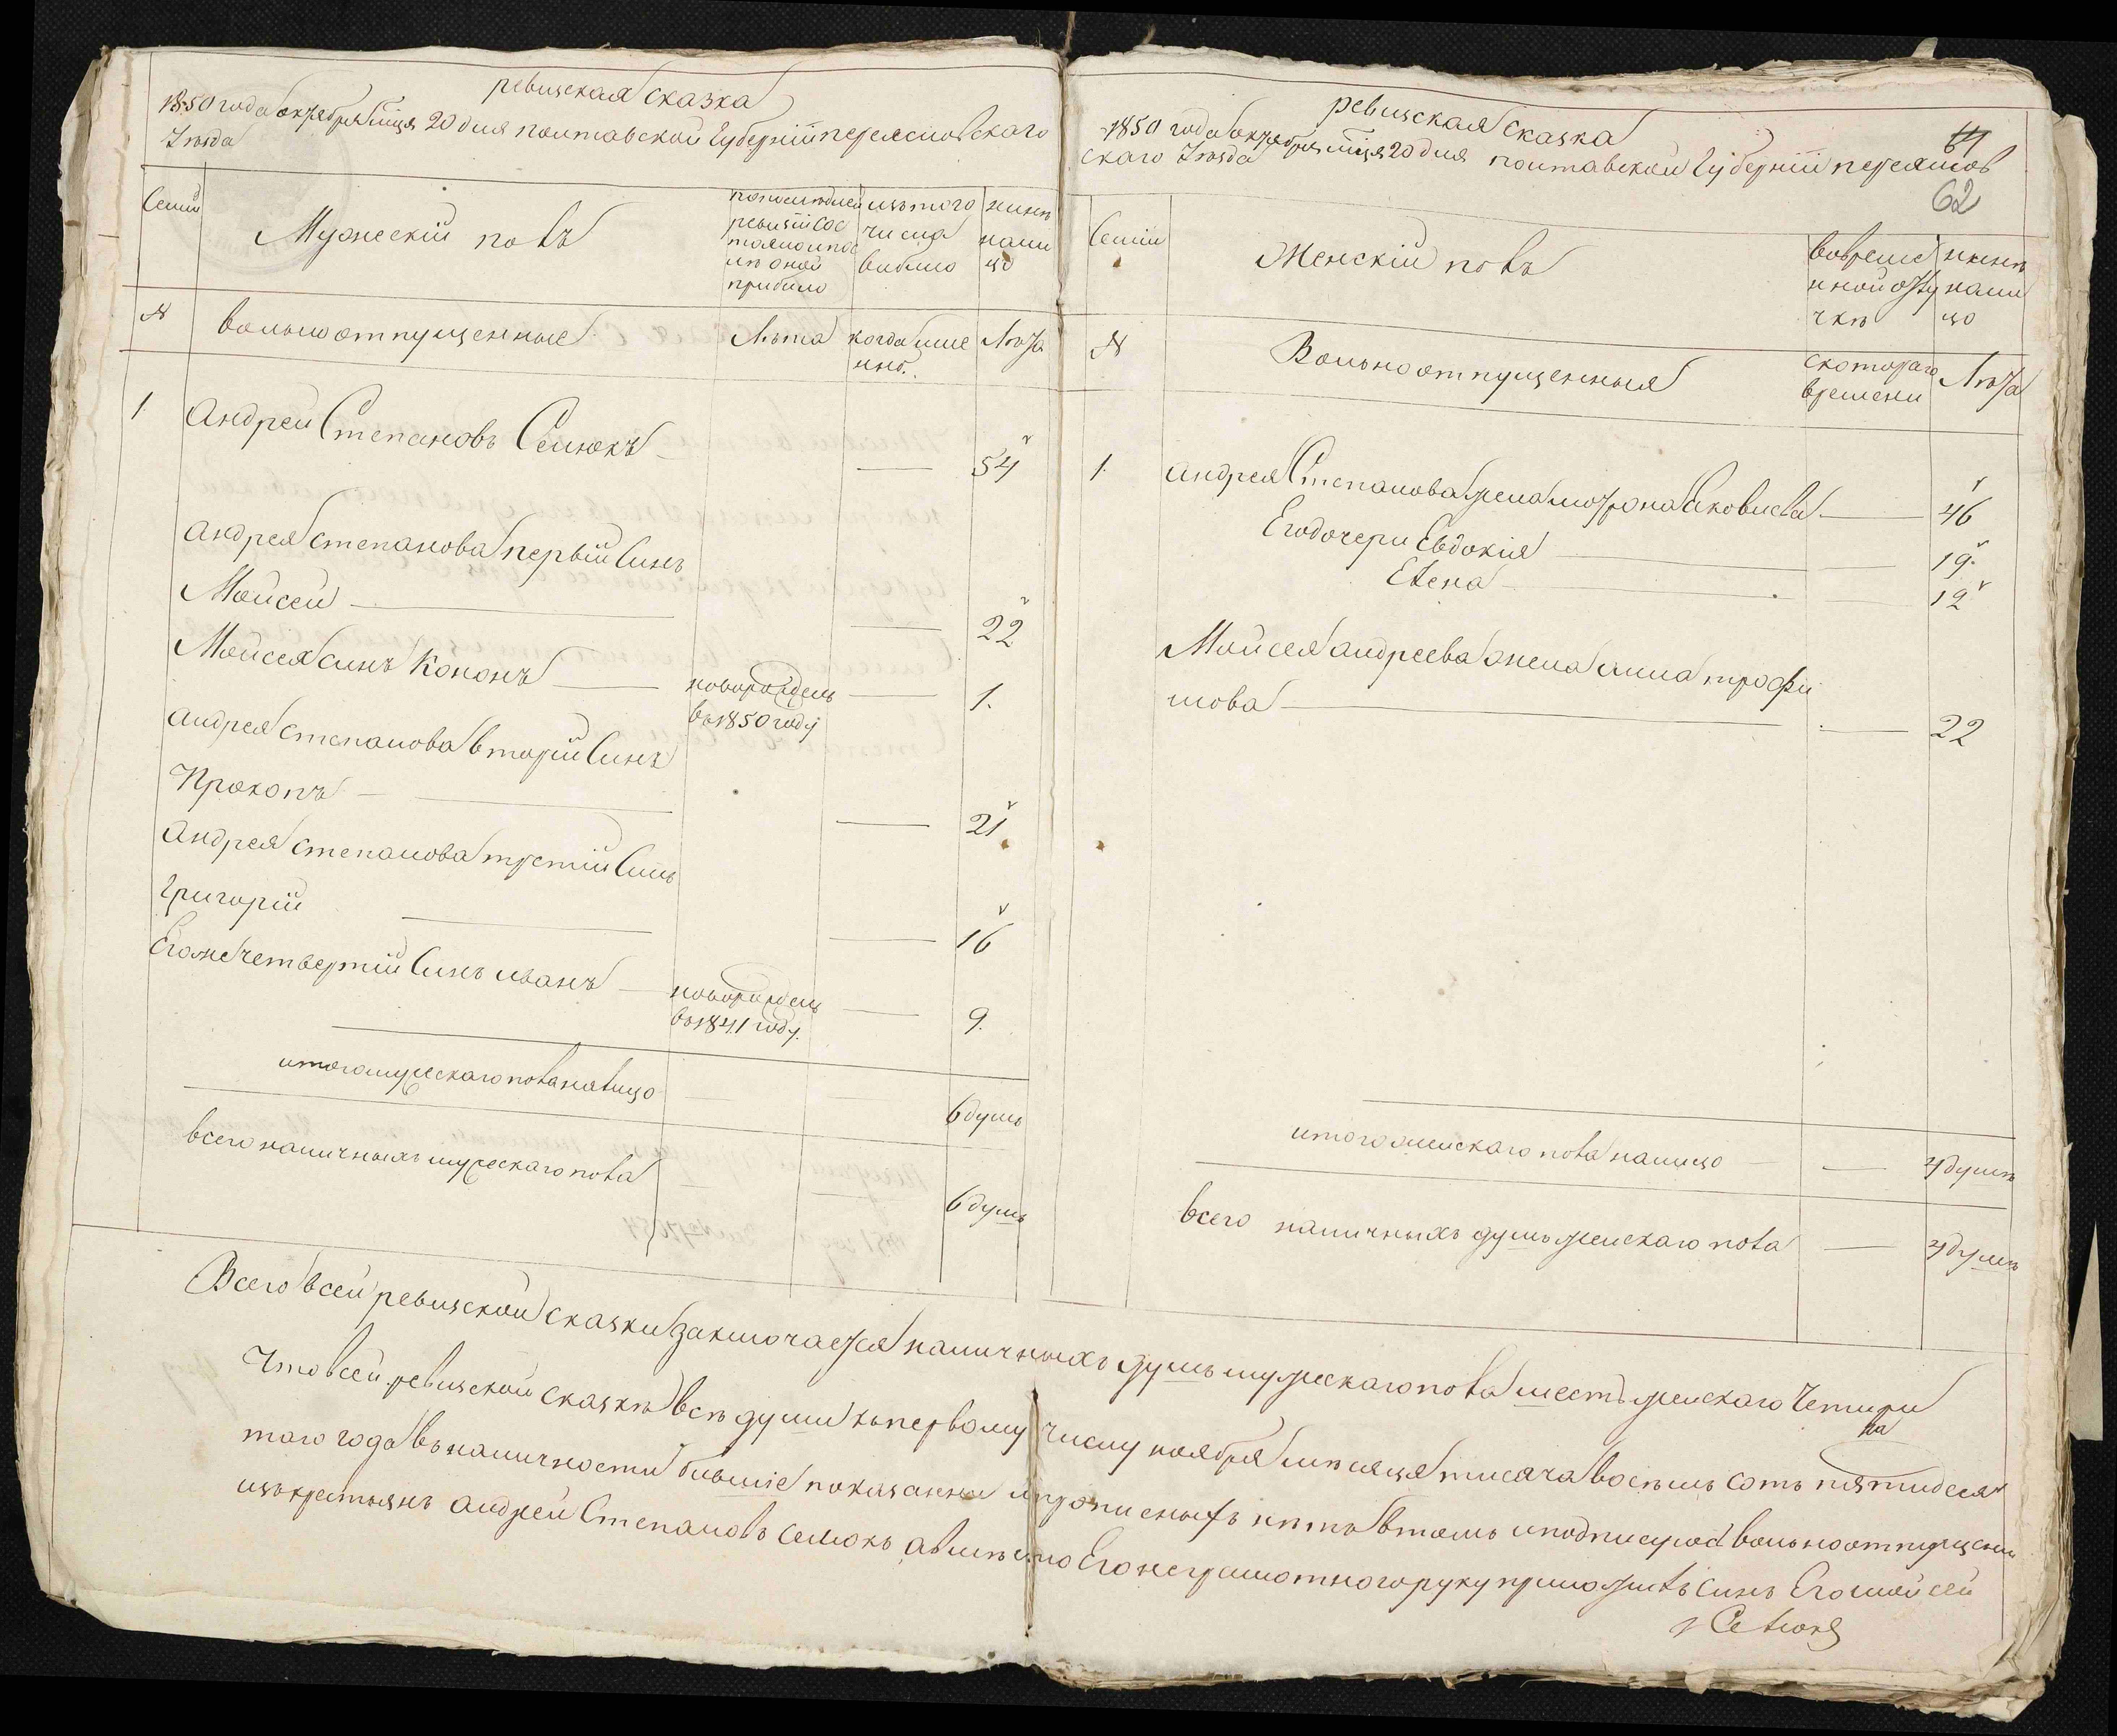 ревизская сказка
1850 года октября мца 20 дня полтавской Губернии переяславскаго
уезда
Семьи
Мужеский полъ
по последней
ревизии сос
тояло и пос
ле оной
прибыло
изъ того
числа
выбыло
ныне
нали
цо
№
вольноотпущенные
Лета
когда име
нно.
Лета
1
Андрей Степановъ Семюкъ
54
Андрея Степанова первый Синъ
Мойсей
22
Мойсея синъ Кононъ
новорожденъ
въ 1850 году
1.
Андрея Степанова вторій Синъ
Прокопъ
21
Андрея Степанова третій Синъ
Григорій
16
Егоже четвертій Синъ иванъ
новорожденъ
въ 1841 году.
9.
итого мужескаго пола налицо
6 душъ
всего наличныхъ мужескаго пола
6 душъ
ревизская Сказка
1850 года октября мца 20 дня полтавской Губерніи переяслов
скаго уезда
62
Семьи
Женскій полъ
вовреме
нной отлу
чкѣ
нынѣ
нали
цо
№
Вольноотпущенныя
скотораго
времени
Лѣта
1.
андрея Степанова жена Яковлева
46
Его дочери Евдокія
19.
Елена
12
Мойсея андреева жена анна трофи
мова
22
итого женскаго пола налицо
4 душѣ
всего наличныхъ душъ женскаго пола
4 душѣ
Всего всей ревизской сказки заключается наличныхъ душъ мужескаго пола шесть женскаго Четири
Что всей ревизской сказкѣ всѣ души къ первому числу ноября мѣсяца тисяча восѣмъ сотъ пятидеся
на
таго года въ наличности бившіе показанни и прописныхъ нѣтъ втомъ и подписуюсь вольноотпущенни
изъ крестьянъ андрей Степановъ семюкъ а вмѣсто Его неграмотного руку приложилъ синъ Его мойсей
Семюкъ